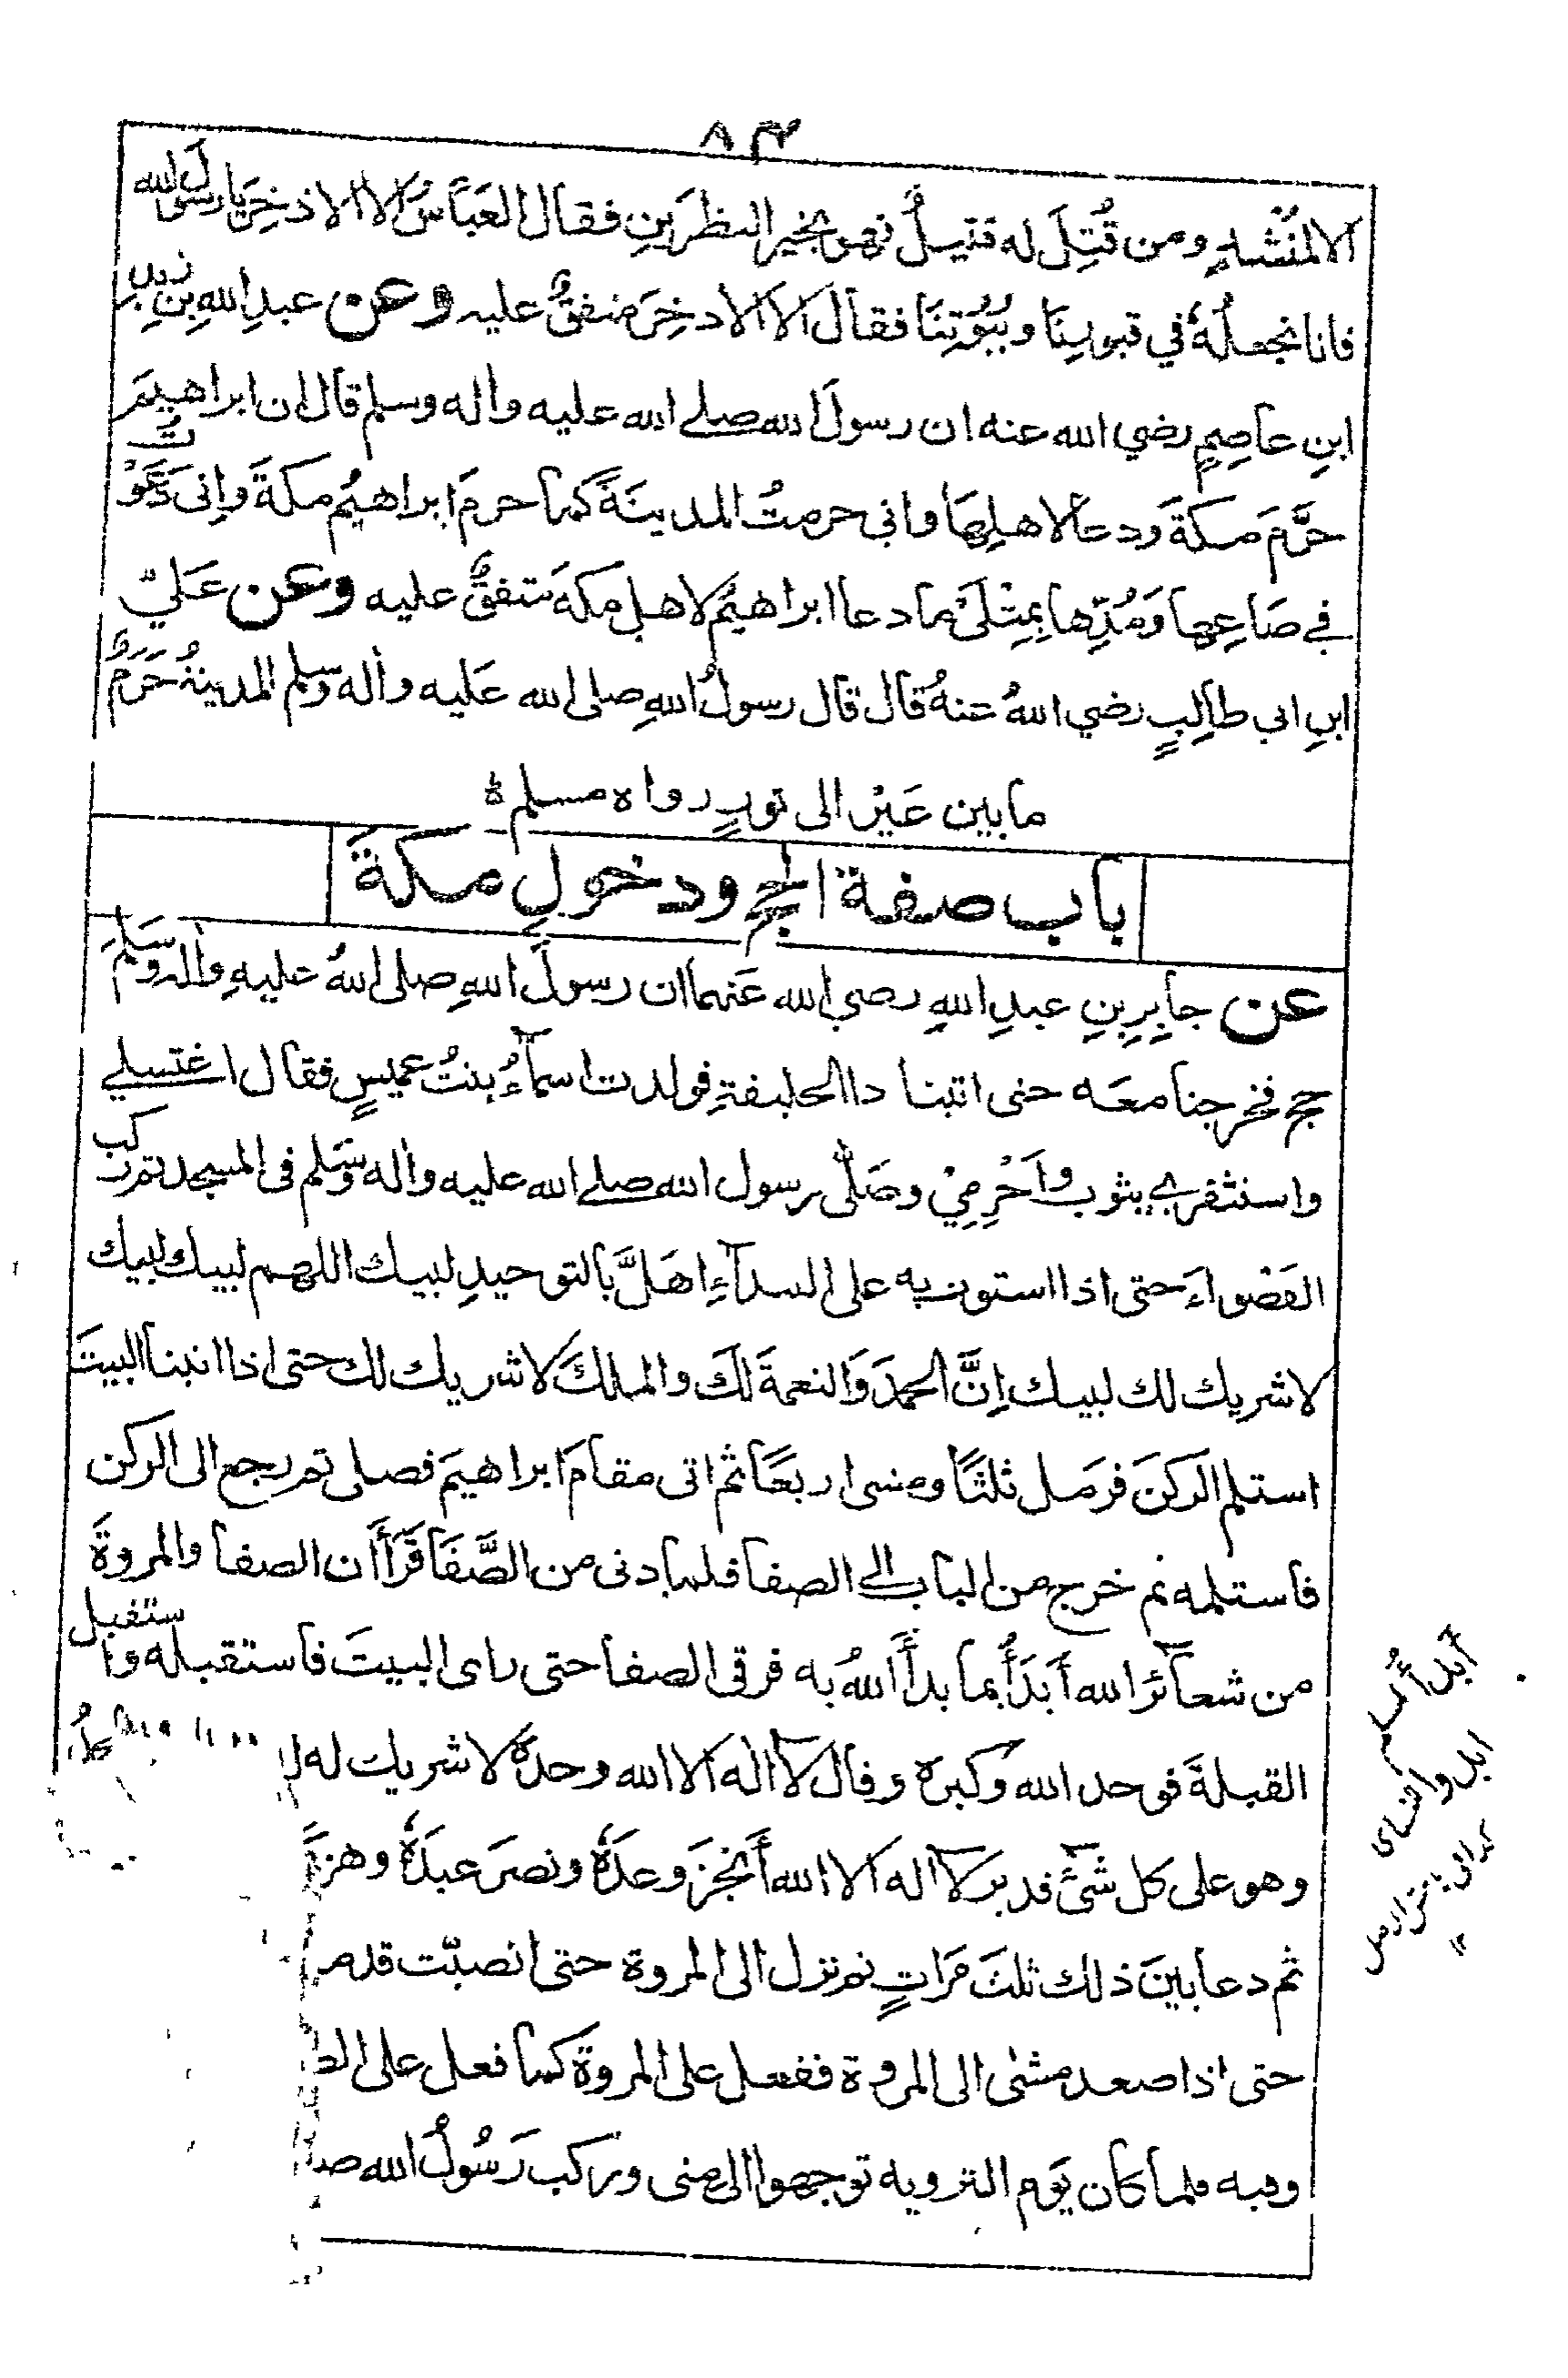 ٨٣
الا لمُنشدٍ ومن قُتِلَ له قتيلٌ فهو بخير النظرَينِ فقال العَبَّاسُ الا الاذخِرَ يا رسولَ الله
فانا نجعلُهٗ في قبورِنَا وبُيُوتِنَا فقال الا الاذخِرَ متفقٌ عليه وعن عبدِ اللهِ بنِ زيدِ
ابنِ عاصِمٍ رضي الله عنه ان رسولَ الله صلے الله عليه واٰله وسلم قال ان ابراهيمَ
حرَّمَ مكةَ ودعا لاهلِهَا واني حرمتُ المدينَةَ كما حرمَ ابراهيمُ مكةَ واِنی دَعَوْتُ
في صَاعِها وَمُدِّها بِمِثْلَیْ ما دعا ابراهيمُ لاهل مكةَ متفقٌ عليه وعن عَليّ
ابنِ ابي طالِبٍ رضي اللهُ عنهُ قال قال رسولُ اللهِ صلی الله عَليه واٰله وسلم المدينةُ حَرَمٌ
ما بين عَيْر الی ثورٍ رواه مسلم ۃ
باب صفة الحج ودخولِ مكةَ
عن جابِرِ بنِ عبدِ اللهِ رضي الله عَنهما ان رسولَ اللهِ صلی اللهُ عليهِ واٰله وَسَلمَ
حج فخرجنا معَه حتی اتينا ذا الحليفةِ فولدت اسمآءُ بنتُ عميسٍ فقال اغتسلے
واستثفرے بثوب واَحْرِمِيْ وصَلّٰی رسول الله صلے الله عليه واٰله وسَلم فی المسجد ثم ركب
القَصْواءَ حتی اذا استوت به علی البيدآءِ اهَلَّ بالتوحيدِ لبيك اللهم لبيك لبيك
لا شريك لك لبيك اِنَّ الحمدَ وَالنعمةَ لكَ والملكَ لا شريك لك حتی اذا اتينا البيتَ
استلم الركنَ فرَمَل ثلثًا ومشی اربعًا ثم اتی مقامَ ابراهيمَ فصلی ثم رجع الی الركن
فاستلمه ثم خرج من الباب الے الصفا فلما دنی من الصَّفَا قَرَأَ ان الصفا والمروةَ
من شعآئر الله أَبدَأُ بما بدأَ اللهُ به فرقی الصفا حتی رای البيتَ فاستقبله واستقبل
القبلةَ فوحد الله وكبره وقال لآ اله الا الله وحدَهٗ لا شريك له
وهو علی كل شَيْءٍ قدير لآ اله الا الله أَنجَزَ وعدَهٗ ونصرَ عبدَهٗ وهزمَ
ثم دعا بينَ ذلك ثلثَ مَرَاتٍ ثم نزل الی المروة حتی انصبّت قدم
حتی اذا صعد مشٰی الی المروة ففعل علی المروةِ كما فعل علی
وفيه فلما كان يَوم التروية توجهوا الی منی وركب رَسُولُ الله